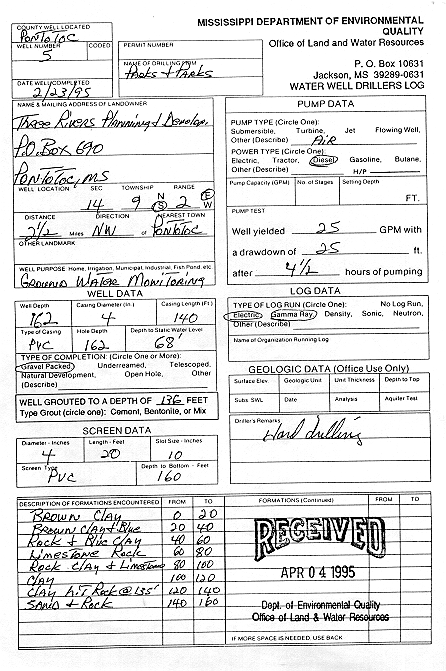 MISSISSIPPI DEPARTMENT OF ENVIRONMENTAL
QUALITY
Office of Land and Water Resources
P. O. Box 10631
Jackson, MS 39289-0631
WATER WELL DRILLERS LOG
COUNTY WELL LOCATED
Pontotoc
WELL NUMBER CODED
5
PERMIT NUMBER
NAME OF DRILLING FIRM
Parks & Parks
DATE WELL COMPLETED
2/23/95
NAME & MAILING ADDRESS OF LANDOWNER
Three Rivers Planning & Develop.
P.O. Box 690
Pontotoc, MS
WELL LOCATION SEC TOWNSHIP RANGE
14 9 N S 2 E W
DISTANCE DIRECTION NEAREST TOWN
2 1/2 Miles NW of Pontotoc
OTHER LANDMARK
WELL PURPOSE: Home, Irrigation, Municipal, Industrial, Fish Pond, etc
Ground Water Monitoring
WELL DATA
Well Depth Casing Diameter (in.) Casing Length (Ft.)
162 4 140
Type of Casing Hole Depth Depth to Static Water Level
PVC 162 68'
TYPE OF COMPLETION: (Circle One or More):
Gravel Packed, Underreamed, Telescoped,
Natural Development, Open Hole, Other
(Describe)
WELL GROUTED TO A DEPTH OF 136 FEET
Type Grout (circle one): Cement, Bentonite, or Mix
SCREEN DATA
Diameter - Inches Length - Feet Slot Size - Inches
4 20 10
Screen Type Depth to Bottom - Feet
PVC 160
PUMP DATA
PUMP TYPE (Circle One):
Submersible, Turbine, Jet Flowing Well,
Other (Describe) Air
POWER TYPE (Circle One):
Electric, Tractor, Diesel, Gasoline, Butane,
Other (Describe) H/P
Pump Capacity (GPM) No. of Stages Setting Depth
FT.
PUMP TEST
Well yielded 25 GPM with
a drawdown of 25 ft.
after 4 1/2 hours of pumping
LOG DATA
TYPE OF LOG RUN (Circle One): No Log Run,
Electric, Gamma Ray, Density, Sonic, Neutron,
Other (Describe)
Name of Organization Running Log
GEOLOGIC DATA (Office Use Only)
Surface Elev. Geologic Unit Unit Thickness Depth to Top
Subs. SWL Date Analysis Aquifer Test
Driller's Remarks
Hard drilling
DESCRIPTION OF FORMATIONS ENCOUNTERED FROM TO
Brown Clay 0 20
Brown Clay & Blue 20 40
Rock & Blue Clay 40 60
Limestone Rock 60 80
Rock Clay & Limestone 80 100
Clay 100 120
Clay hit Rock @ 135' 120 140
Sand & Rock 140 160
FORMATIONS (Continued) FROM TO
RECEIVED
APR 04 1995
Dept. of Environmental Quality
Office of Land & Water Resources
IF MORE SPACE IS NEEDED USE BACK